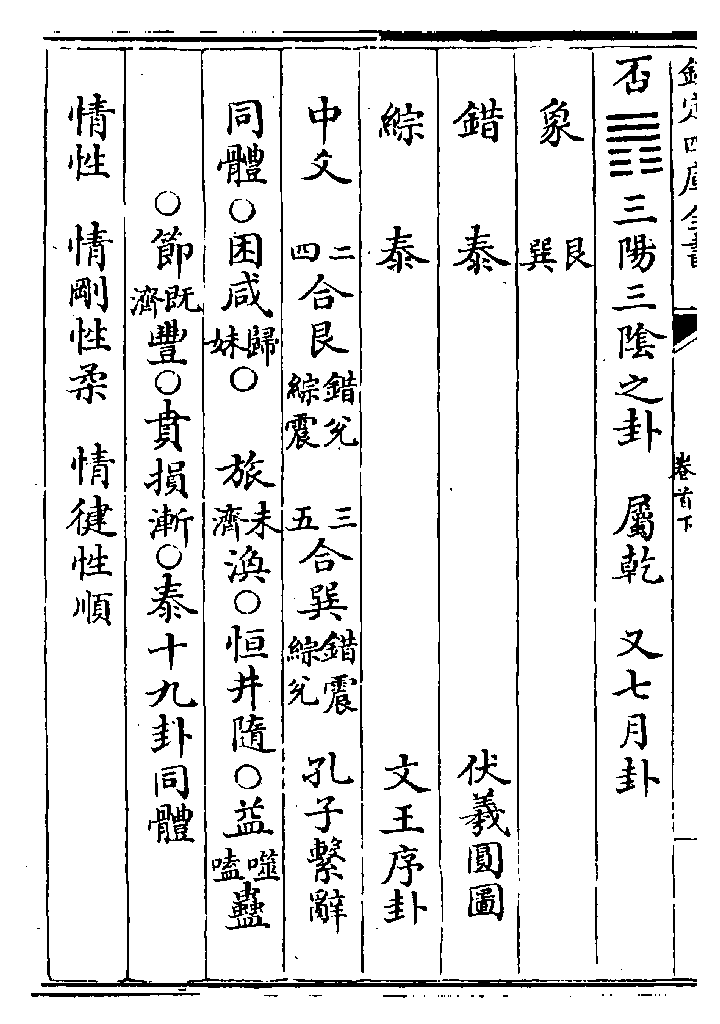 欽定四庫全書 卷首下
否䷋三陽三陰之卦 屬乾 又七月卦
象 艮巽
錯 泰 伏羲圓圖
綜 泰 文王序卦
中爻 二四合艮錯兌綜震 三五合巽錯震綜兌 孔子繫辭
同體○困咸歸妹○旅未濟渙○恒井隨○益噬嗑蠱
○節既濟豐○賁損漸○泰十九卦同體
情性 情剛性柔 情健性順